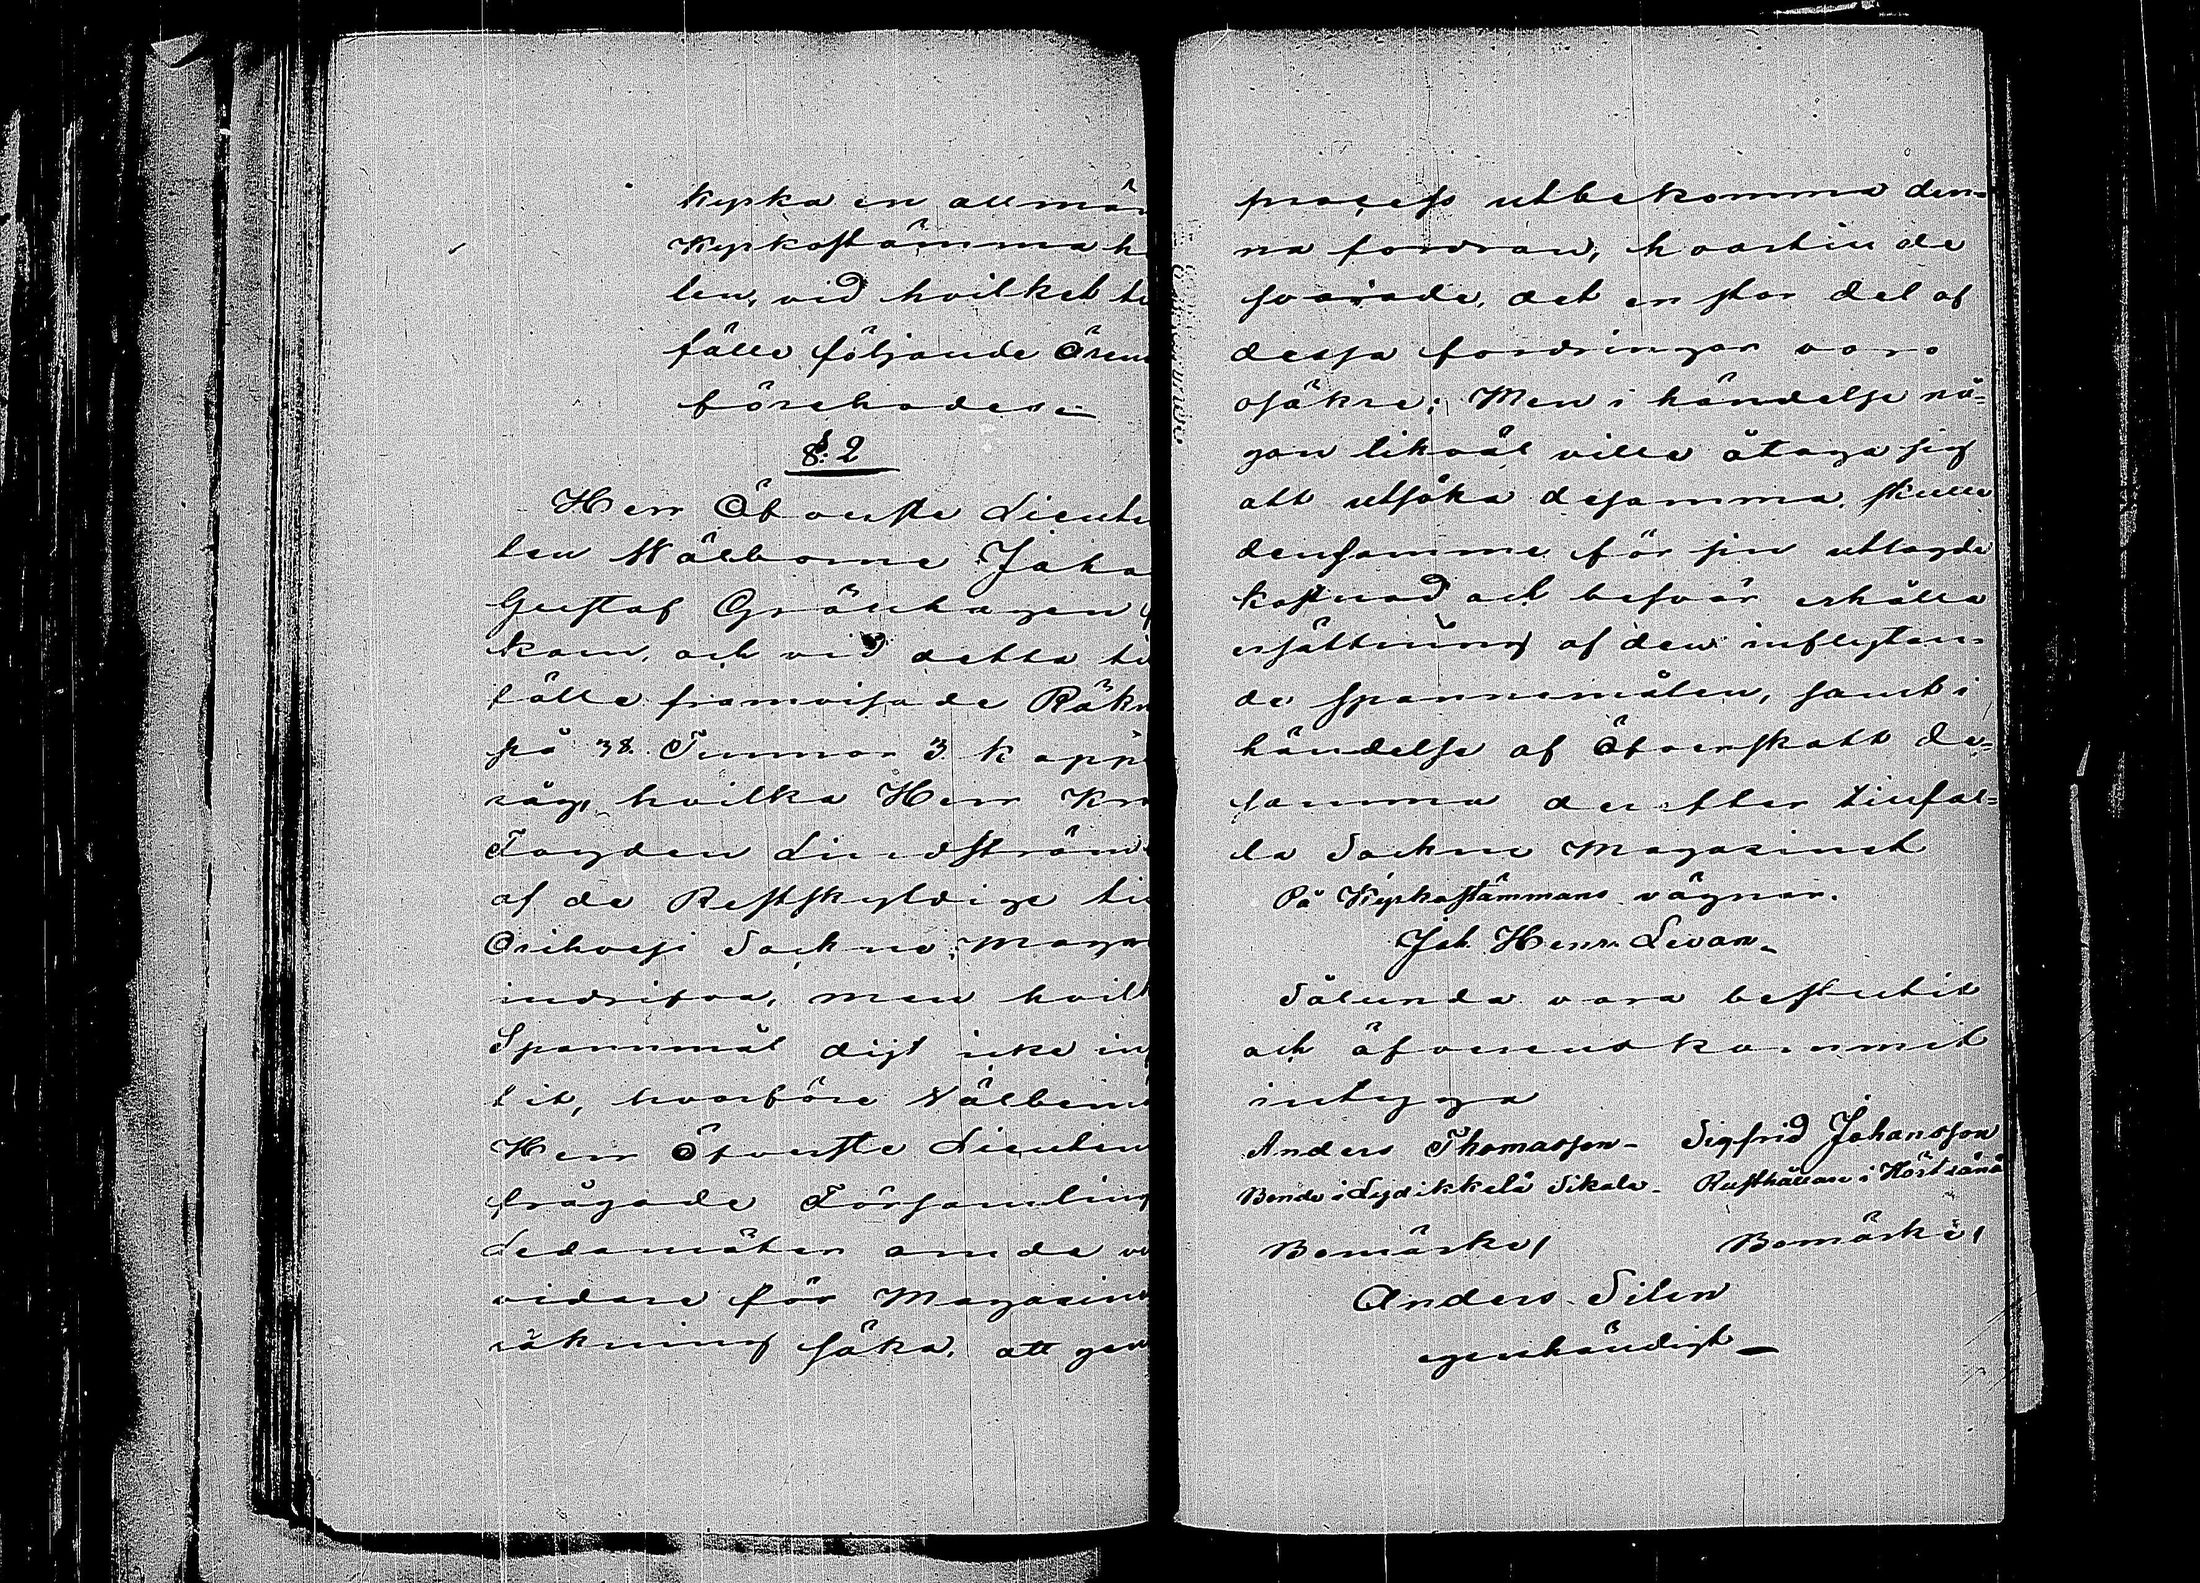 Kyrka en allmän
Kyrkostämma h
len, vid hvilket ti
fälle följande Ären
förehades:
§. 2
Herr Öfverste Lieute
len Välborne Joha
Gustaf Grönhagen
kom, och vid detta ti
fälle framvisade Räkn
på 38. Tunnor 3. kapp
råg, hvilka Herr Kro
Fogden Lindström
af de Restskyldige ti
Orihvesi Sockne Maga
indrifva, men hvilk
Spannmål dijt icke in
tit, hvarföre Välbem
Herr Öfverste Lieuten
frågade Församling
Ledamöter om de vi
vidare för Magasins
räkning söka, att gen
process utbekomma den-
na fordran, hvartill de
svarade, det en stor del af
dessa fordringar voro
osäkre; Men i händelse nå-
gon likväl ville åtaga sig
att utsöka desamma, skulle
densamme för sin uttagde
kostnad och besvär erhålla
ersättning af den inflytan-
de spannemålen, samt i
händelse af Öfverskott de-
samma derefter tillfal-
la Sockne Magasinet
På Kyrkostämmans vägnar.
Joh. Henr. Levan.
Sålunda vara beslutit
och öfverenskommit
intyga
Anders Thomasson - Sigfrid Johansson
Bonde i Lydikkelä Sikala - Rusthållare i Hörtsänä
Bomärke, Bomärke,
Anders Silen
egenhändigt